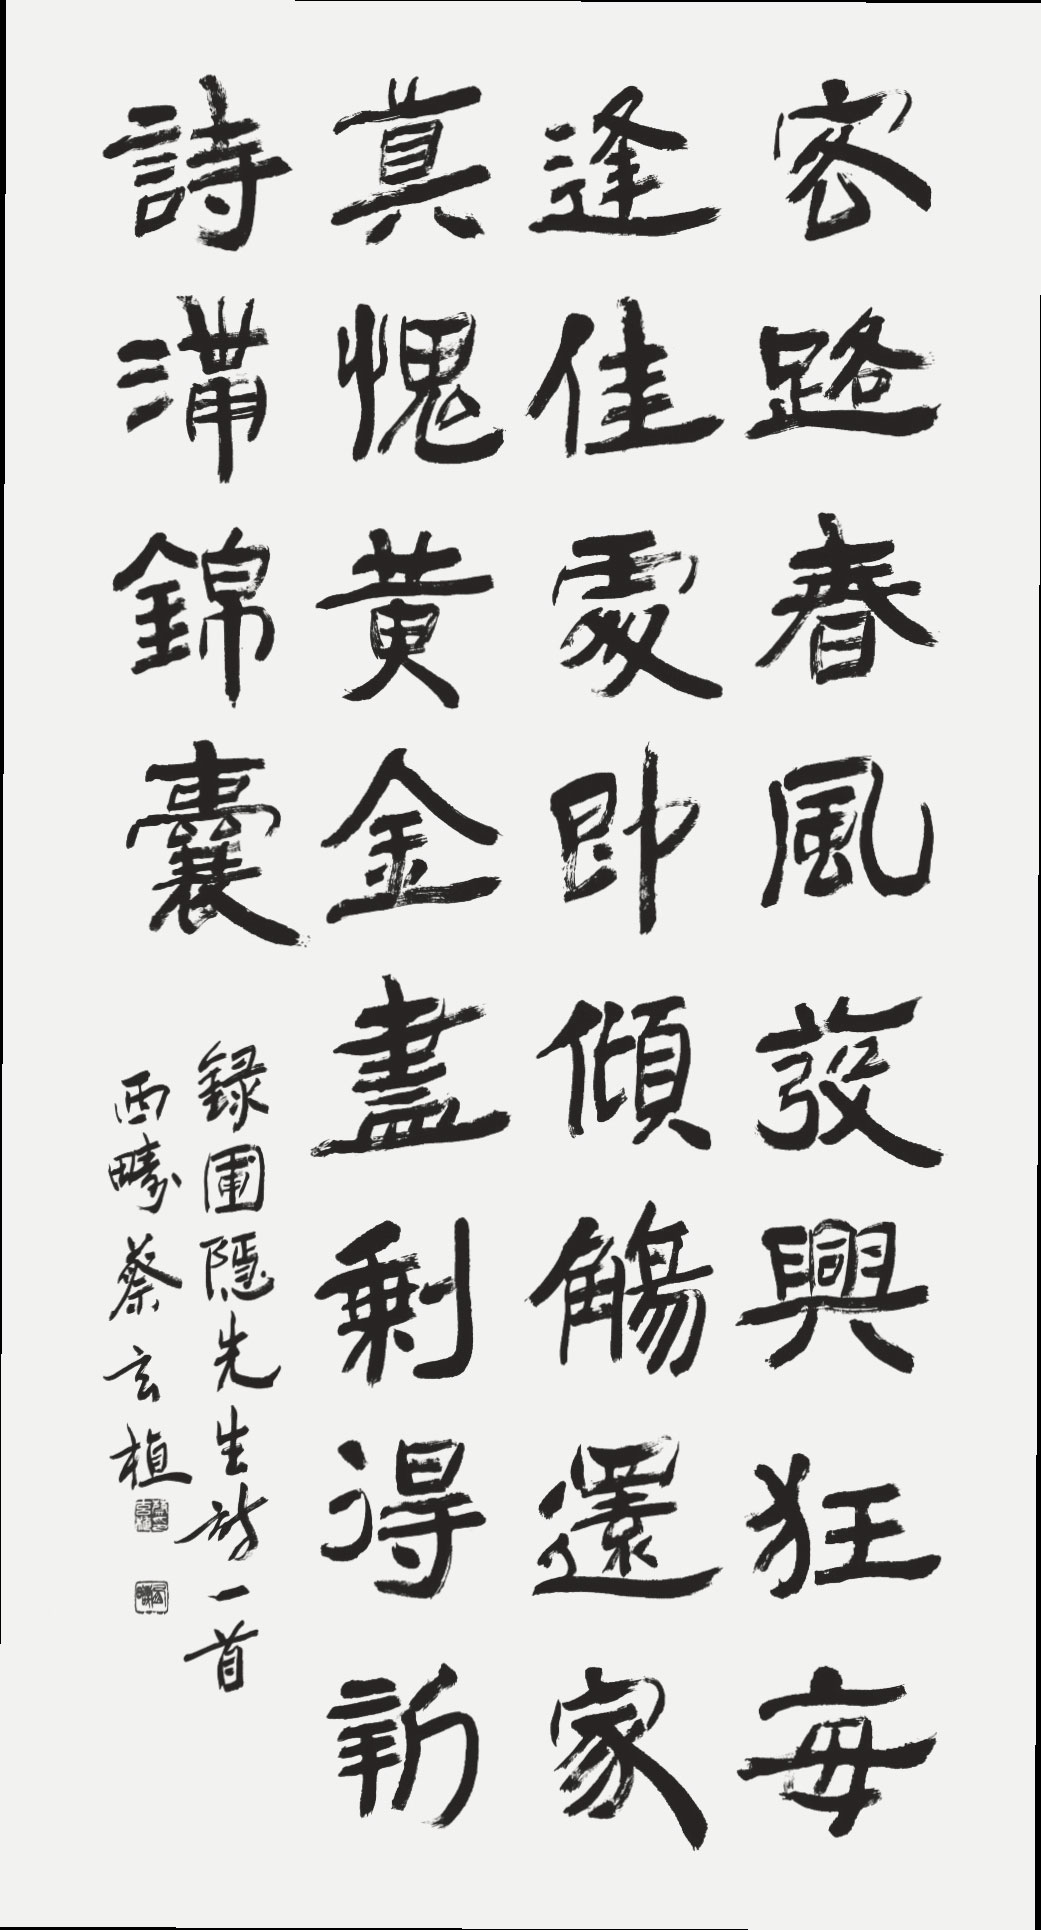 客路春風發興狂每
逢佳處即傾觴還家
真愧黃金盡剩得新
詩滿錦囊
錄圃隱先生詩一首
西疇蔡玄植